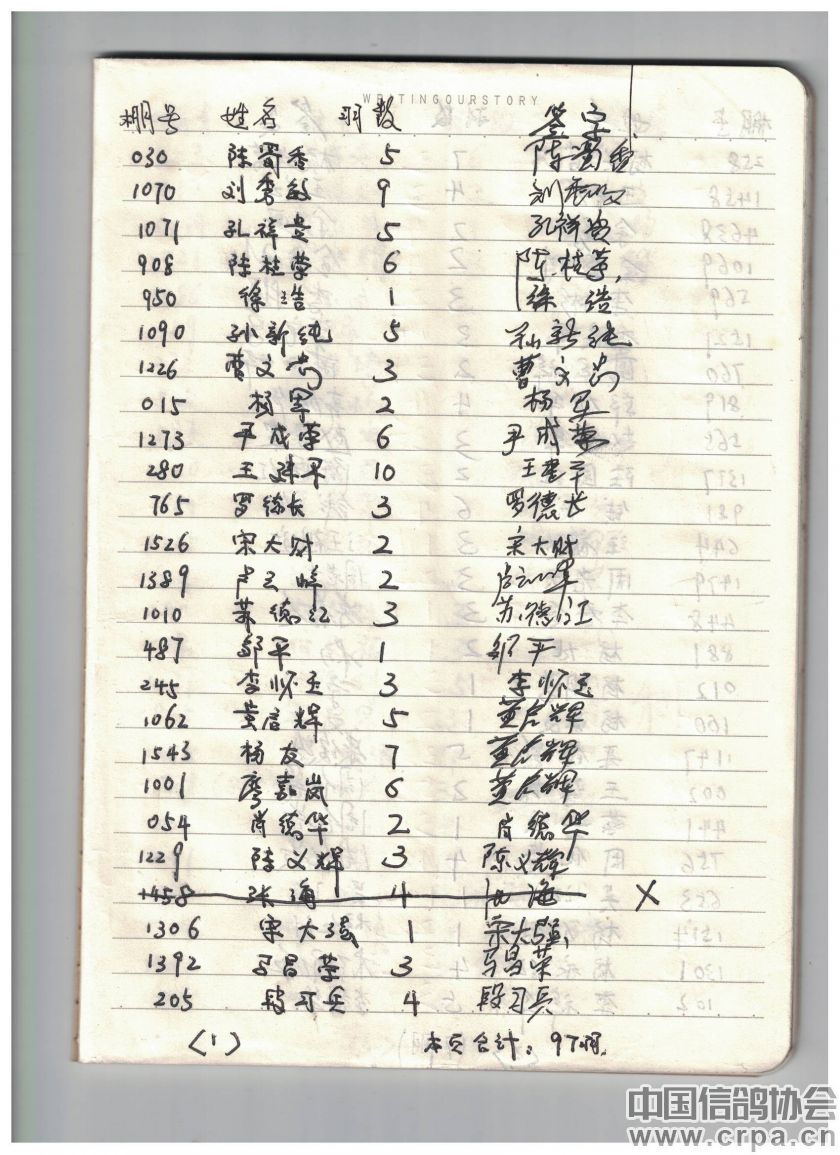 WRITINGOURSTORY
棚号 姓名 羽数 签字
030 陈蜀香 5 陈蜀香
1070 刘秀敏 9 刘秀敏
1071 孔祥贵 5 孔祥贵
908 陈桂蓉 6 陈桂蓉
950 徐浩 1 徐浩
1090 孙新纯 5 孙新纯
1226 曹文尚 3 曹文尚
015 杨军 2 杨军
1273 尹成荣 6 尹成荣
280 王建平 10 王建平
765 罗德长 3 罗德长
1526 宋大财 2 宋大财
1389 卢云峰 2
1010 苏德江 3 苏德江
487 邹平 1 邹平
245 李怀玉 3 李怀玉
1062 黄启辉 5 黄启辉
1543 杨友 7 黄启辉
1001 廖嘉岚 6 黄启辉
054 肖德华 2 肖德华
1229 陈义辉 3 陈义辉
1458 张海 4 张海 X
1306 宋大强 1 宋大强
1392 马昌荣 3 马昌荣
205 段习兵 4 段习兵
(1) 本页合计: 97羽.
中国信鸽协会
www.crpa.cn